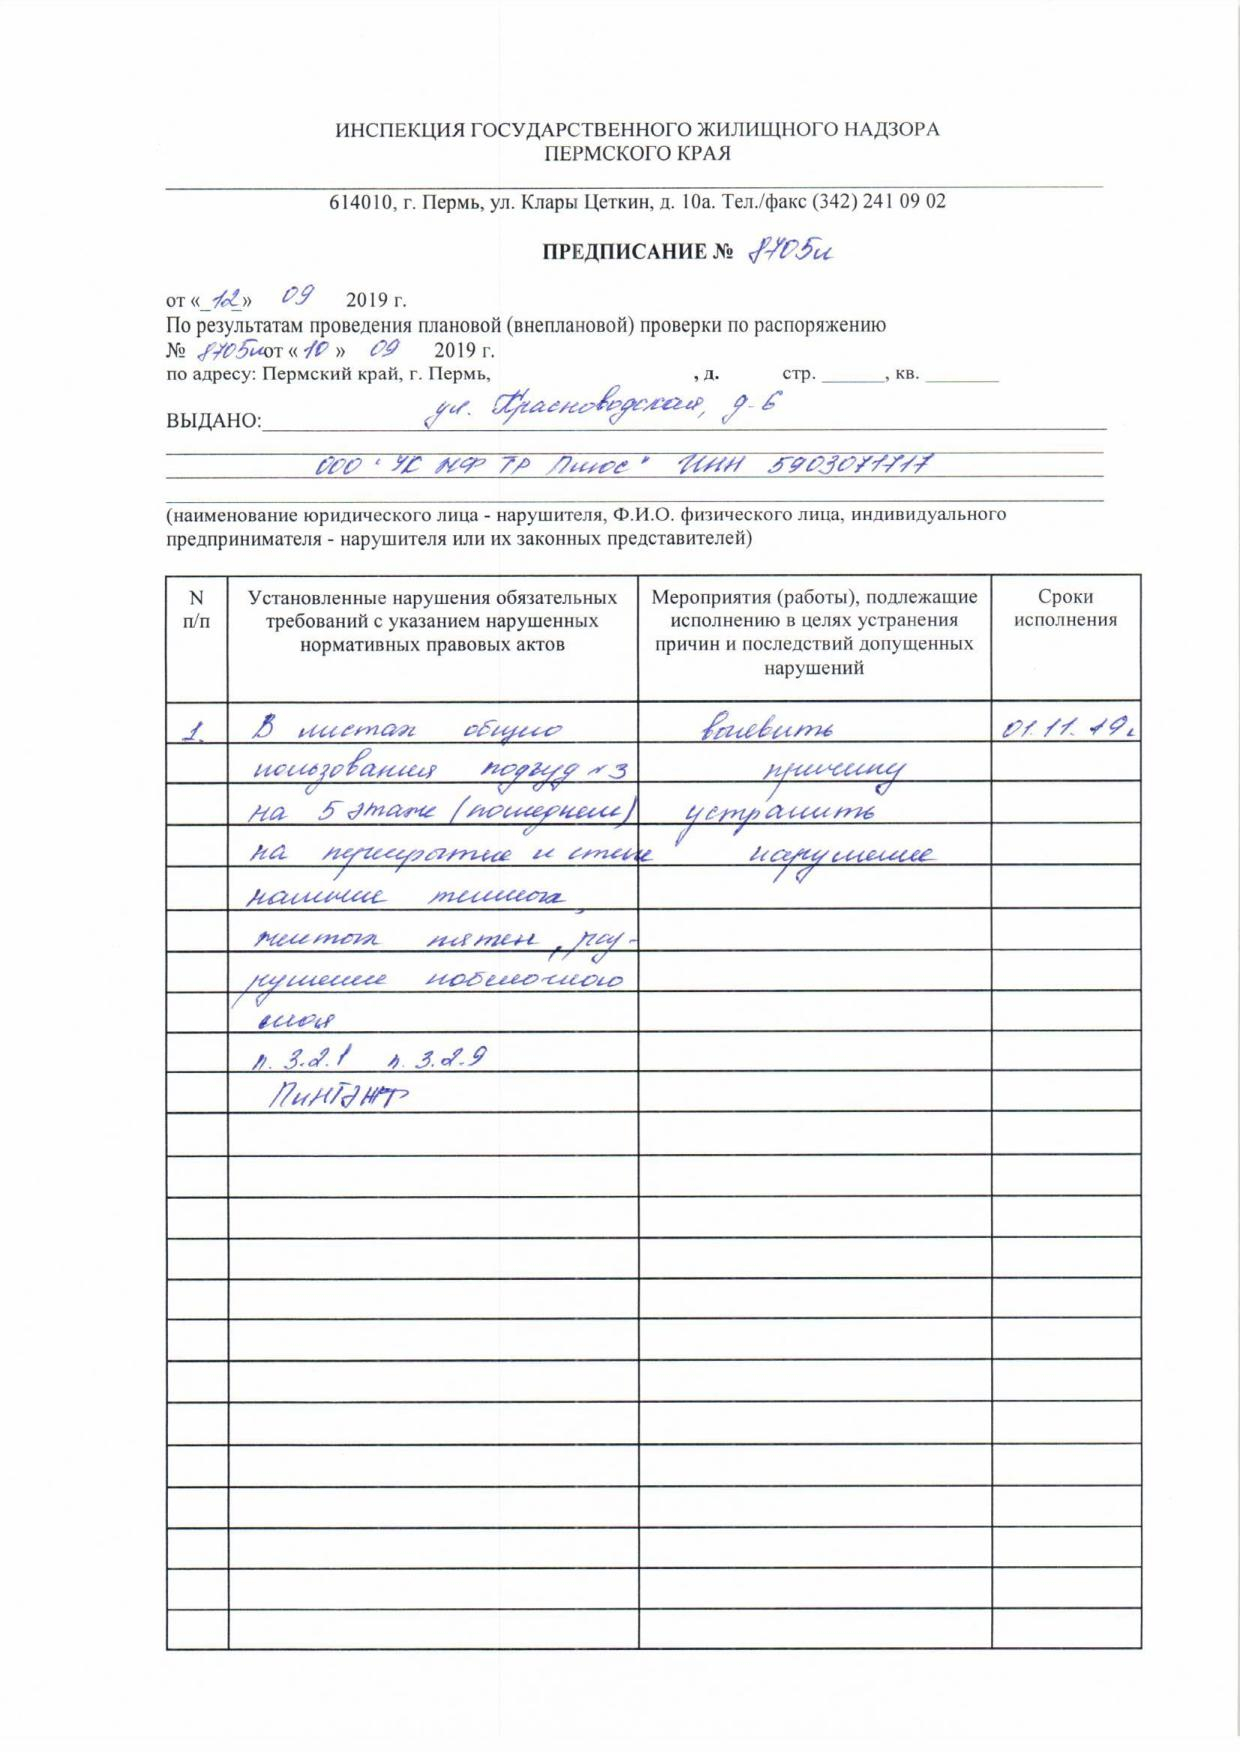 ИНСПЕКЦИЯ ГОСУДАРСТВЕННОГО ЖИЛИЩНОГО НАДЗОРА
ПЕРМСКОГО КРАЯ
614010, г. Пермь, ул. Клары Цеткин, д. 10а. Тел./факс (342) 241 09 02
ПРЕДПИСАНИЕ № 8705л
от «_12_» 09 2019 г.
По результатам проведения плановой (внеплановой) проверки по распоряжению
№ 8705л от « 10 » 09 2019 г.
по адресу: Пермский край, г. Пермь, , д. стр. ______, кв. _______
ул. Красноводская, д-6
ВЫДАНО:
ООО "УК ЖФ ТР Плюс" ИНН 5903071717
(наименование юридического лица - нарушителя, Ф.И.О. физического лица, индивидуального
предпринимателя - нарушителя или их законных представителей)
N п/п
Установленные нарушения обязательных
требований с указанием нарушенных
нормативных правовых актов
Мероприятия (работы), подлежащие
исполнению в целях устранения
причин и последствий допущенных
нарушений
Сроки
исполнения
1. В местах общего выявить 01.11.19г
пользования подъезд №3 причину
на 5 этаже (последнем) устранить
на перекрытие и стене нарушение
наличие темных,
желтых пятен, раз-
рушение побелочного
слоя
п. 3.2.1 п. 3.2.9
ПиНТЭЖФ